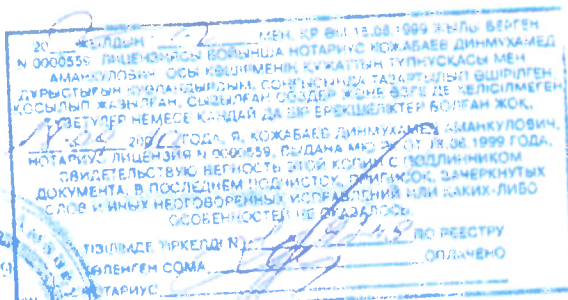 20 ЖЫЛДЫҢ МЕН, ҚР ӘМ 18.08.1999 ЖЫЛЫ БЕРГЕН
N 0000559 ЛИЦЕНЗИЯСЫ БОЙЫНША НОТАРИУС КОЖАБАЕВ ДИНМУХАМЕД
АМАНКУЛОВИЧ ОСЫ КӨШІРМЕНІҢ ҚҰЖАТТЫҢ ТҮПНҰСҚАСЫ МЕН
ДҰРЫСТЫҒЫН КУӘЛАНДЫРДЫМ. СОҢҒЫСЫНДА ТАЗАРТЫЛЫП ӨШІРІЛГЕН,
ҚОСЫЛЫП ЖАЗЫЛҒАН, СЫЗЫЛҒАН СӨЗДЕР ЖӘНЕ ӨЗГЕ ДЕ КЕЛІСІЛМЕГЕН
ТҮЗЕТУЛЕР НЕМЕСЕ ҚАНДАЙ ДА БІР ЕРЕКШЕЛІКТЕР БОЛҒАН ЖОҚ.
20 ГОДА, Я, КОЖАБАЕВ ДИНМУХАМЕД АМАНКУЛОВИЧ,
НОТАРИУС ЛИЦЕНЗИЯ N 0000559, ВЫДАНА МЮ РК ОТ 18.08.1999 ГОДА,
СВИДЕТЕЛЬСТВУЮ ВЕРНОСТЬ ЭТОЙ КОПИИ С ПОДЛИННИКОМ
ДОКУМЕНТА. В ПОСЛЕДНЕМ ПОДЧИСТОК, ПРИПИСОК, ЗАЧЕРКНУТЫХ
СЛОВ И ИНЫХ НЕОГОВОРЕННЫХ ИСПРАВЛЕНИЙ ИЛИ КАКИХ-ЛИБО
ОСОБЕННОСТЕЙ НЕ ОКАЗАЛОСЬ
ТІЗІЛІМДЕ ТІРКЕЛДІ N ПО РЕЕСТРУ
ТӨЛЕНГЕН СОМА ОПЛАЧЕНО
НОТАРИУС